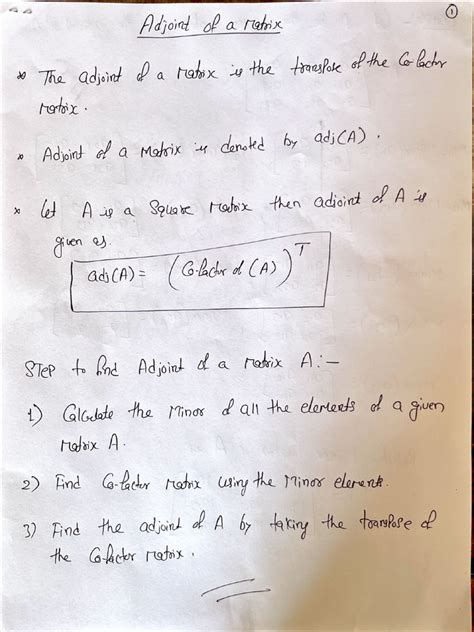 ①
Adjoint of a Matrix
* The adjoint of a Matrix is the transpose of the Co-factor
Matrix.
* Adjoint of a Matrix is denoted by adj(A).
* Let A is a Square Matrix then adjoint of A is
given as.
adj(A) = (Co-factor of (A))^T
STEP to find Adjoint of a Matrix A:-
1) Calculate the Minor of all the elements of a given
Matrix A.
2) Find Co-factor Matrix using the Minor elements.
3) Find the adjoint of A by taking the transpose of
the Co-factor Matrix.